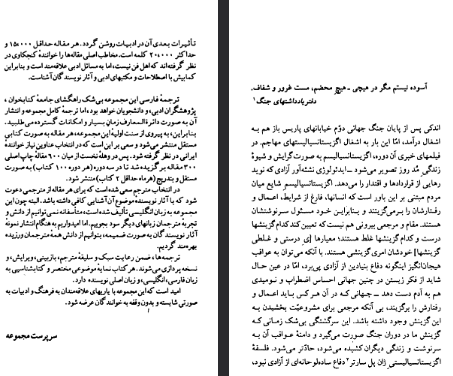 آسوده نیستم مگر در هیچی ـ هیچ محض، مست غرور و شفاف.
دفتر یادداشتهای جنگ ۱
اندکی پس از پایان جنگ جهانی دوّم خیابانهای پاریس باز هم به
اشغال درآمد، امّا این بار به اشغال اگزیستانسیالیستهای مهاجم. در
فیلمهای خبری آن دوره، اگزیستانسیالیسم به صورت گرایش و شیوهٔ
زندگی مُد روز تصویر می‌شود ـ ایدئولوژی نشئه‌آور آزادی که نوید
رهایی از قراردادها و اقتدار را می‌دهد. اگزیستانسیالیسم شایع میان
مردم مبتنی بر این باور است که انسانها، فارغ از شرایط، اعمال و
رفتارشان را برمی‌گزینند و بنابراین خود مسئول سرنوشتشان
هستند. مقام و مرجعی بیرونی هم نیست که تعیین کند کدام گزینشها
درست و کدام گزینشها غلط هستند؛ معیارها [ی درستی و غلطی
گزینشها] خودشان امری گزینشی هستند. با آنکه می‌توان به عواقب
هیجان‌انگیز اینگونه دفاع بنیادین از آزادی پی‌برد، امّا در عین حال
شاید از فکر زیستن در چنین جهانی احساس اضطراب و ناامیدی
هم به آدم دست دهد ـ جهانی که در آن هر کس باید اعمال و
رفتارش را برگزیند، بی آنکه مرجعی برای مشروعیت بخشیدن به
این گزینش وجود داشته باشد. این سرگشتگی بی‌شک زمانی که
گزینش ما در دوران جنگ صورت می‌گیرد و دامنهٔ عواقب آن به
سرنوشت و زندگی دیگران کشیده می‌شود، حادّتر می‌شود. فلسفهٔ
اگزیستانسیالیستی ژان پل سارتر ۲ دفاع ساده‌لوحانه‌ای از آزادی نبود،
تأثیرات بعدی آن در ادبیات روشن گردد. هر مقاله حداقل ۱۵۰۰۰ و
حداکثر ۲۰۰۰۰ کلمه است. مخاطب اصلی مقاله‌ها را خوانندهٔ کنجکاوی در
نظر گرفته‌اند که اهل فن نیست، اما به مسائل ادبی علاقه‌مند است و بنابراین
کمابیش با اصطلاحات و مکتبهای ادبی و آثار نویسندگان آشناست.
ترجمهٔ فارسی این مجموعه بی‌شک راهگشای جامعهٔ کتابخوان،
پژوهشگران ادبی و دانشجویان خواهد بود، اما ترجمهٔ کامل مجموعه و انتشار
آن به صورت دائرةالمعارف زمان بسیار و امکانات گسترده می‌طلبید.
بنابراین، به پیروی از سنت اولیهٔ این مجموعه، هر مقاله به صورت کتابی
مستقل منتشر می‌شود و سعی بر این است که در انتخاب عناوین نیاز خوانندهٔ
ایرانی در نظر گرفته شود. پس در وهلهٔ نخست از میان ۶۰۰ مقالهٔ چاپ اصلی
۳۰۰ مقاله برگزیده شد تا در سه دوره (هر دوره ۱۰۰ کتاب) به صورت
مستقل و بتدریج (هر ماه حداقل ۲ کتاب) منتشر شود.
در انتخاب مترجم سعی شده است که برای هر مقاله از مترجمی دعوت
شود که با آثار نویسندهٔ موضوع آن آشنایی کافی داشته باشد. البته چون این
مجموعه به زبان انگلیسی تألیف شده است، متأسفانه نمی‌توانیم از دانش و
تجربهٔ مترجمان زبانهای دیگر سود بجوییم. اما امیدواریم به هنگام انتشار نمونهٔ
آثار نویسندگان به صورت ضمیمه، بتوانیم از دانش همهٔ مترجمان ورزیده
بهره‌مند گردیم.
ترجمه‌ها، ضمن رعایت سبک و سلیقهٔ مترجم، بازبینی، ویرایش، و
نسخه‌پردازی می‌شوند. هر کتاب نمایهٔ موضوعی مختصر و کتابشناسی به
زبان فارسی، انگلیسی، و زبان اصلی نویسنده دارد.
امید است که این مجموعه با یاریهای علاقه‌مندان به فرهنگ و ادبیات به
صورتی شایسته و بدون وقفه به خوانندگان عرضه شود.
سرپرست مجموعه